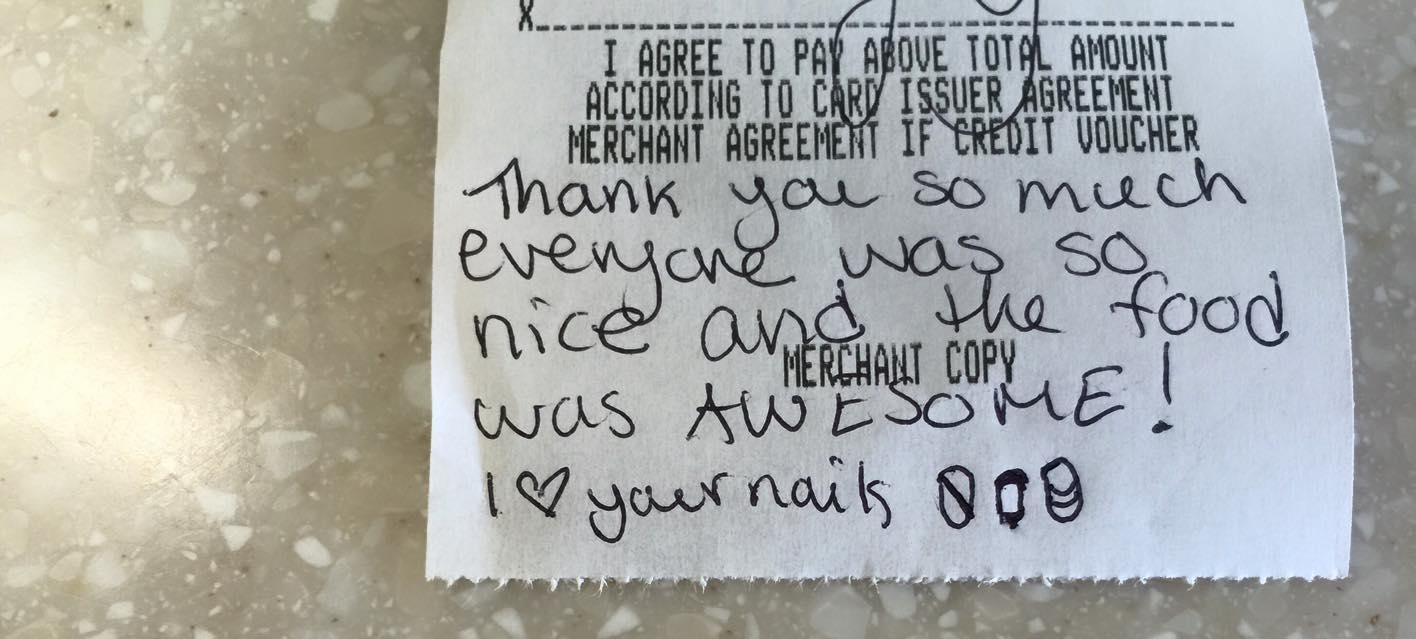 X
I AGREE TO PAY ABOVE TOTAL AMOUNT
ACCORDING TO CARD ISSUER AGREEMENT
MERCHANT AGREEMENT IF CREDIT VOUCHER
Thank you so much
everyone was so
nice and the food
MERCHANT COPY
was AWESOME!
I ♡ your nails